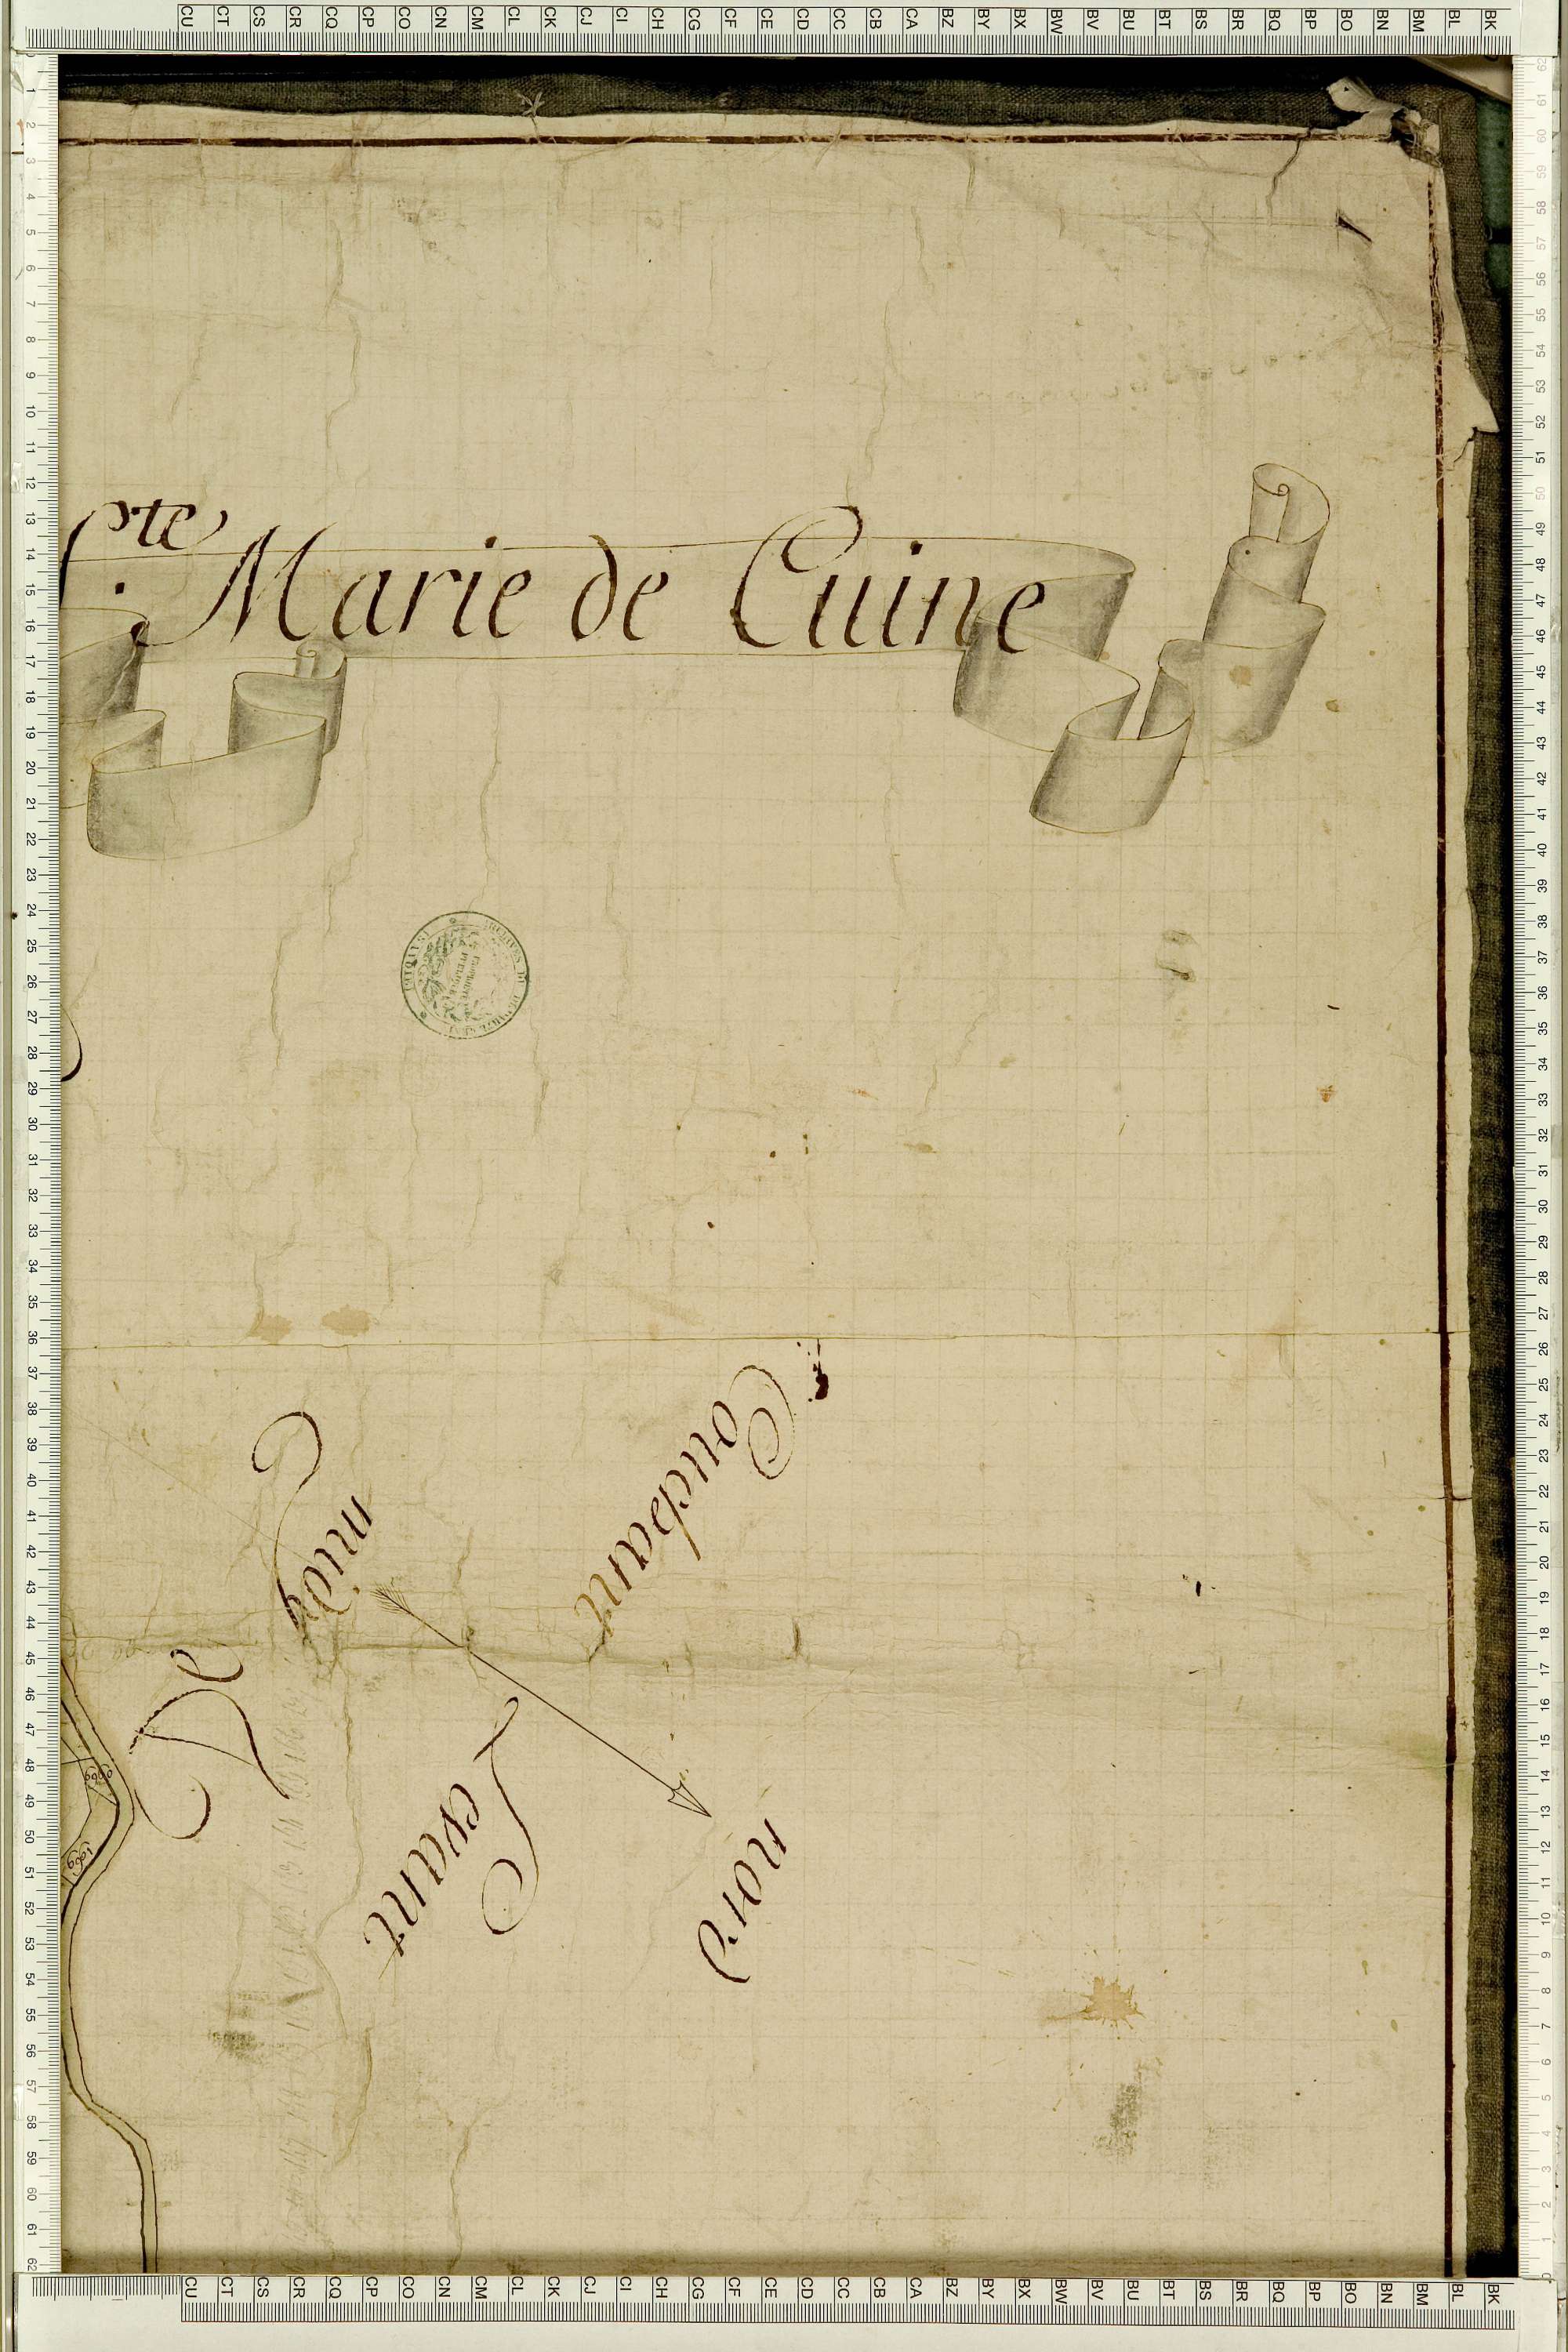 CU CT CS CR CQ CP CO CN CM CL CK CJ CI CH CG CF CE CD CC CB CA BZ BY BX BW BV BU BT BS BR BQ BP BO BN BM BL BK
1 2 3 4 5 6 7 8 9 10 11 12 13 14 15 16 17 18 19 20 21 22 23 24 25 26 27 28 29 30 31 32 33 34 35 36 37 38 39 40 41 42 43 44 45 46 47 48 49 50 51 52 53 54 55 56 57 58 59 60 61 62
62 61 60 59 58 57 56 55 54 53 52 51 50 49 48 47 46 45 44 43 42 41 40 39 38 37 36 35 34 33 32 31 30 29 28 27 26 25 24 23 22 21 20 19 18 17 16 15 14 13 12 11 10 9 8 7 6 5 4 3 2 1 0
S.te Marie de Cuine
PROPRIETE
PUBLIQUE
Couchant
midy
De
Levant
nord
6960
6961
CU CT CS CR CQ CP CO CN CM CL CK CJ CI CH CG CF CE CD CC CB CA BZ BY BX BW BV BU BT BS BR BQ BP BO BN BM BL BK